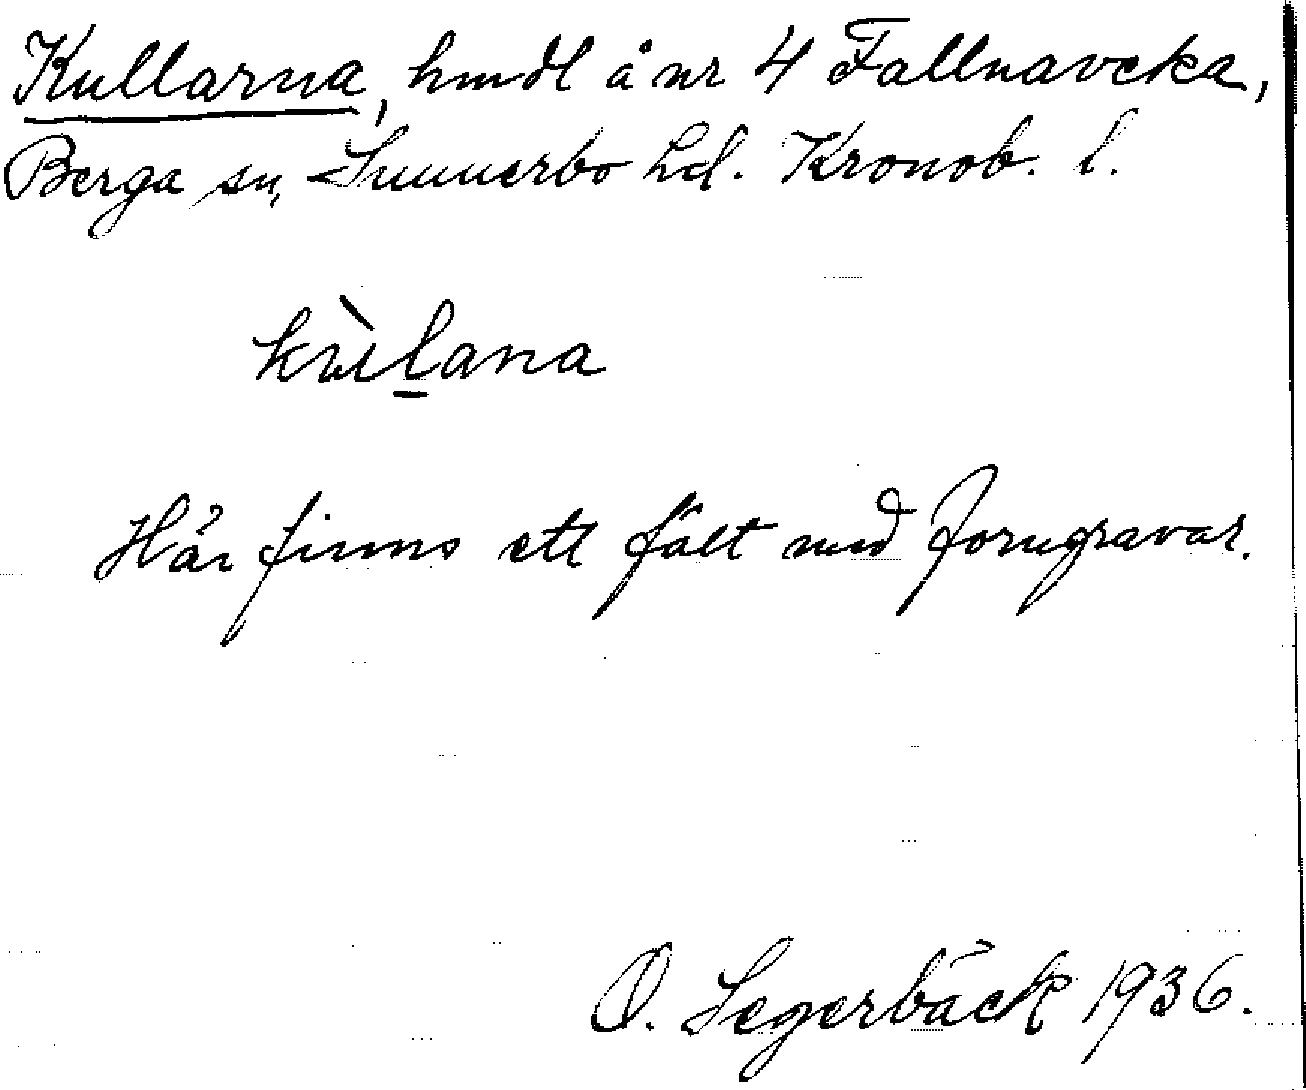 Kullarna, hmdl å nr 4 Fallnaveka,
Berga sn, Sunnerbo hd. Kronob. l.
kùl̲ana
Här finns ett fält med forngravar.
O. Segerbäck 1936.